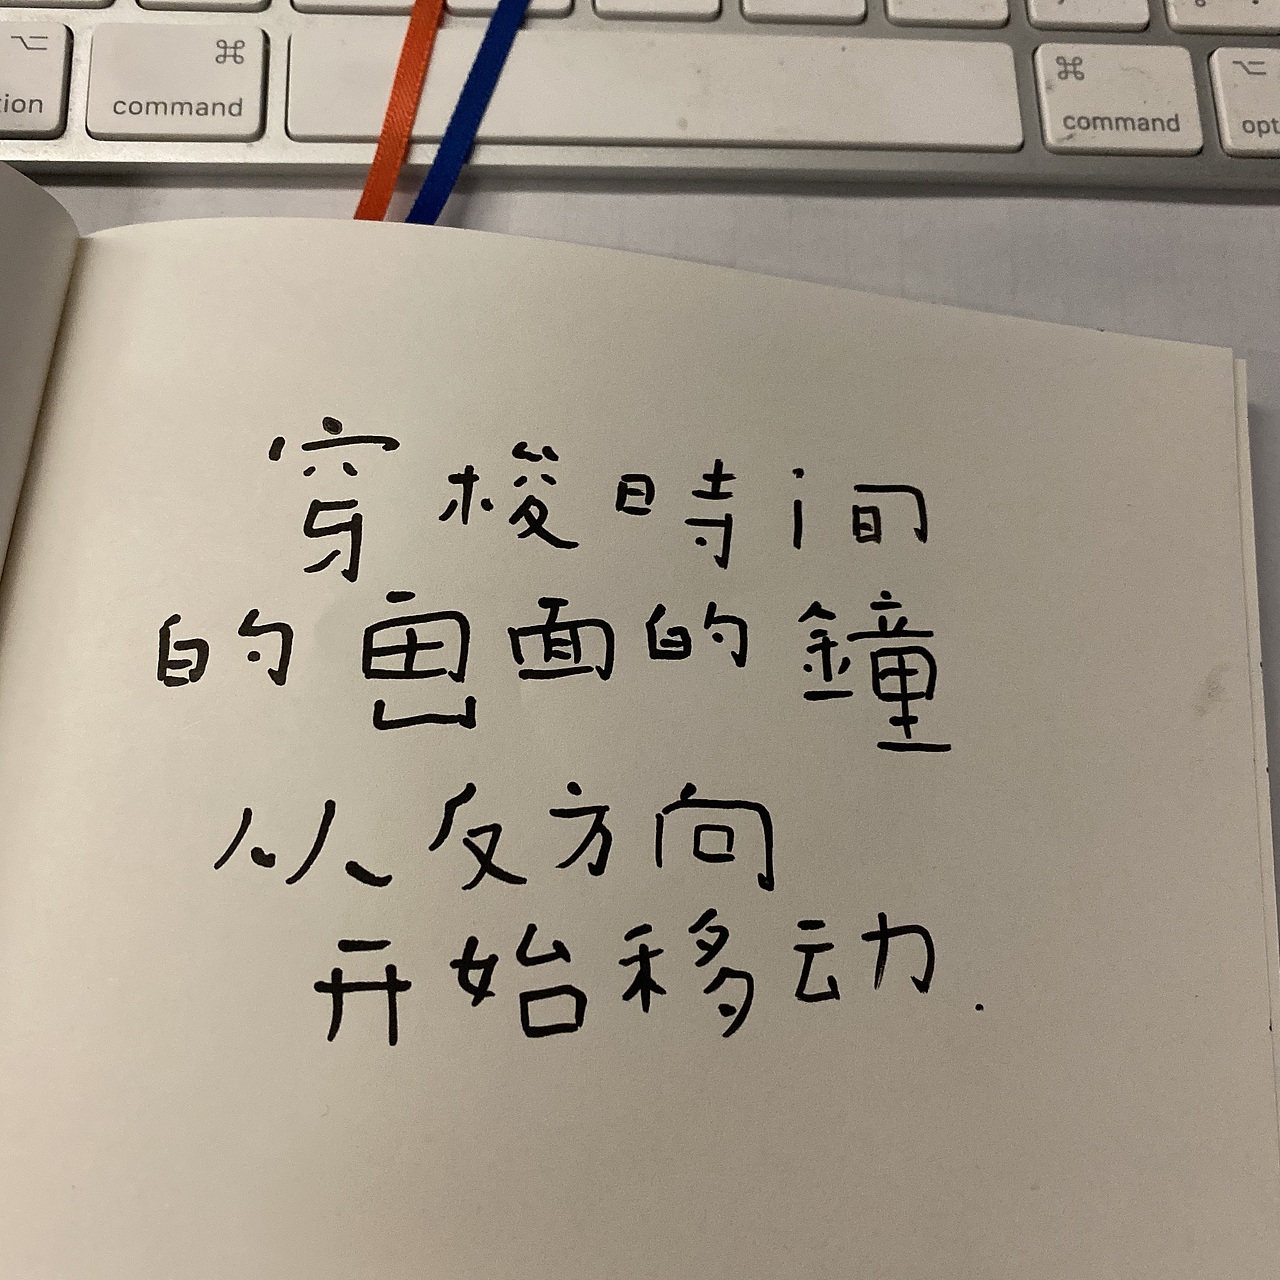 option
⌘
command
⌘
command
⌥
opt
穿梭時间
的画面的鐘
从反方向
开始移动.